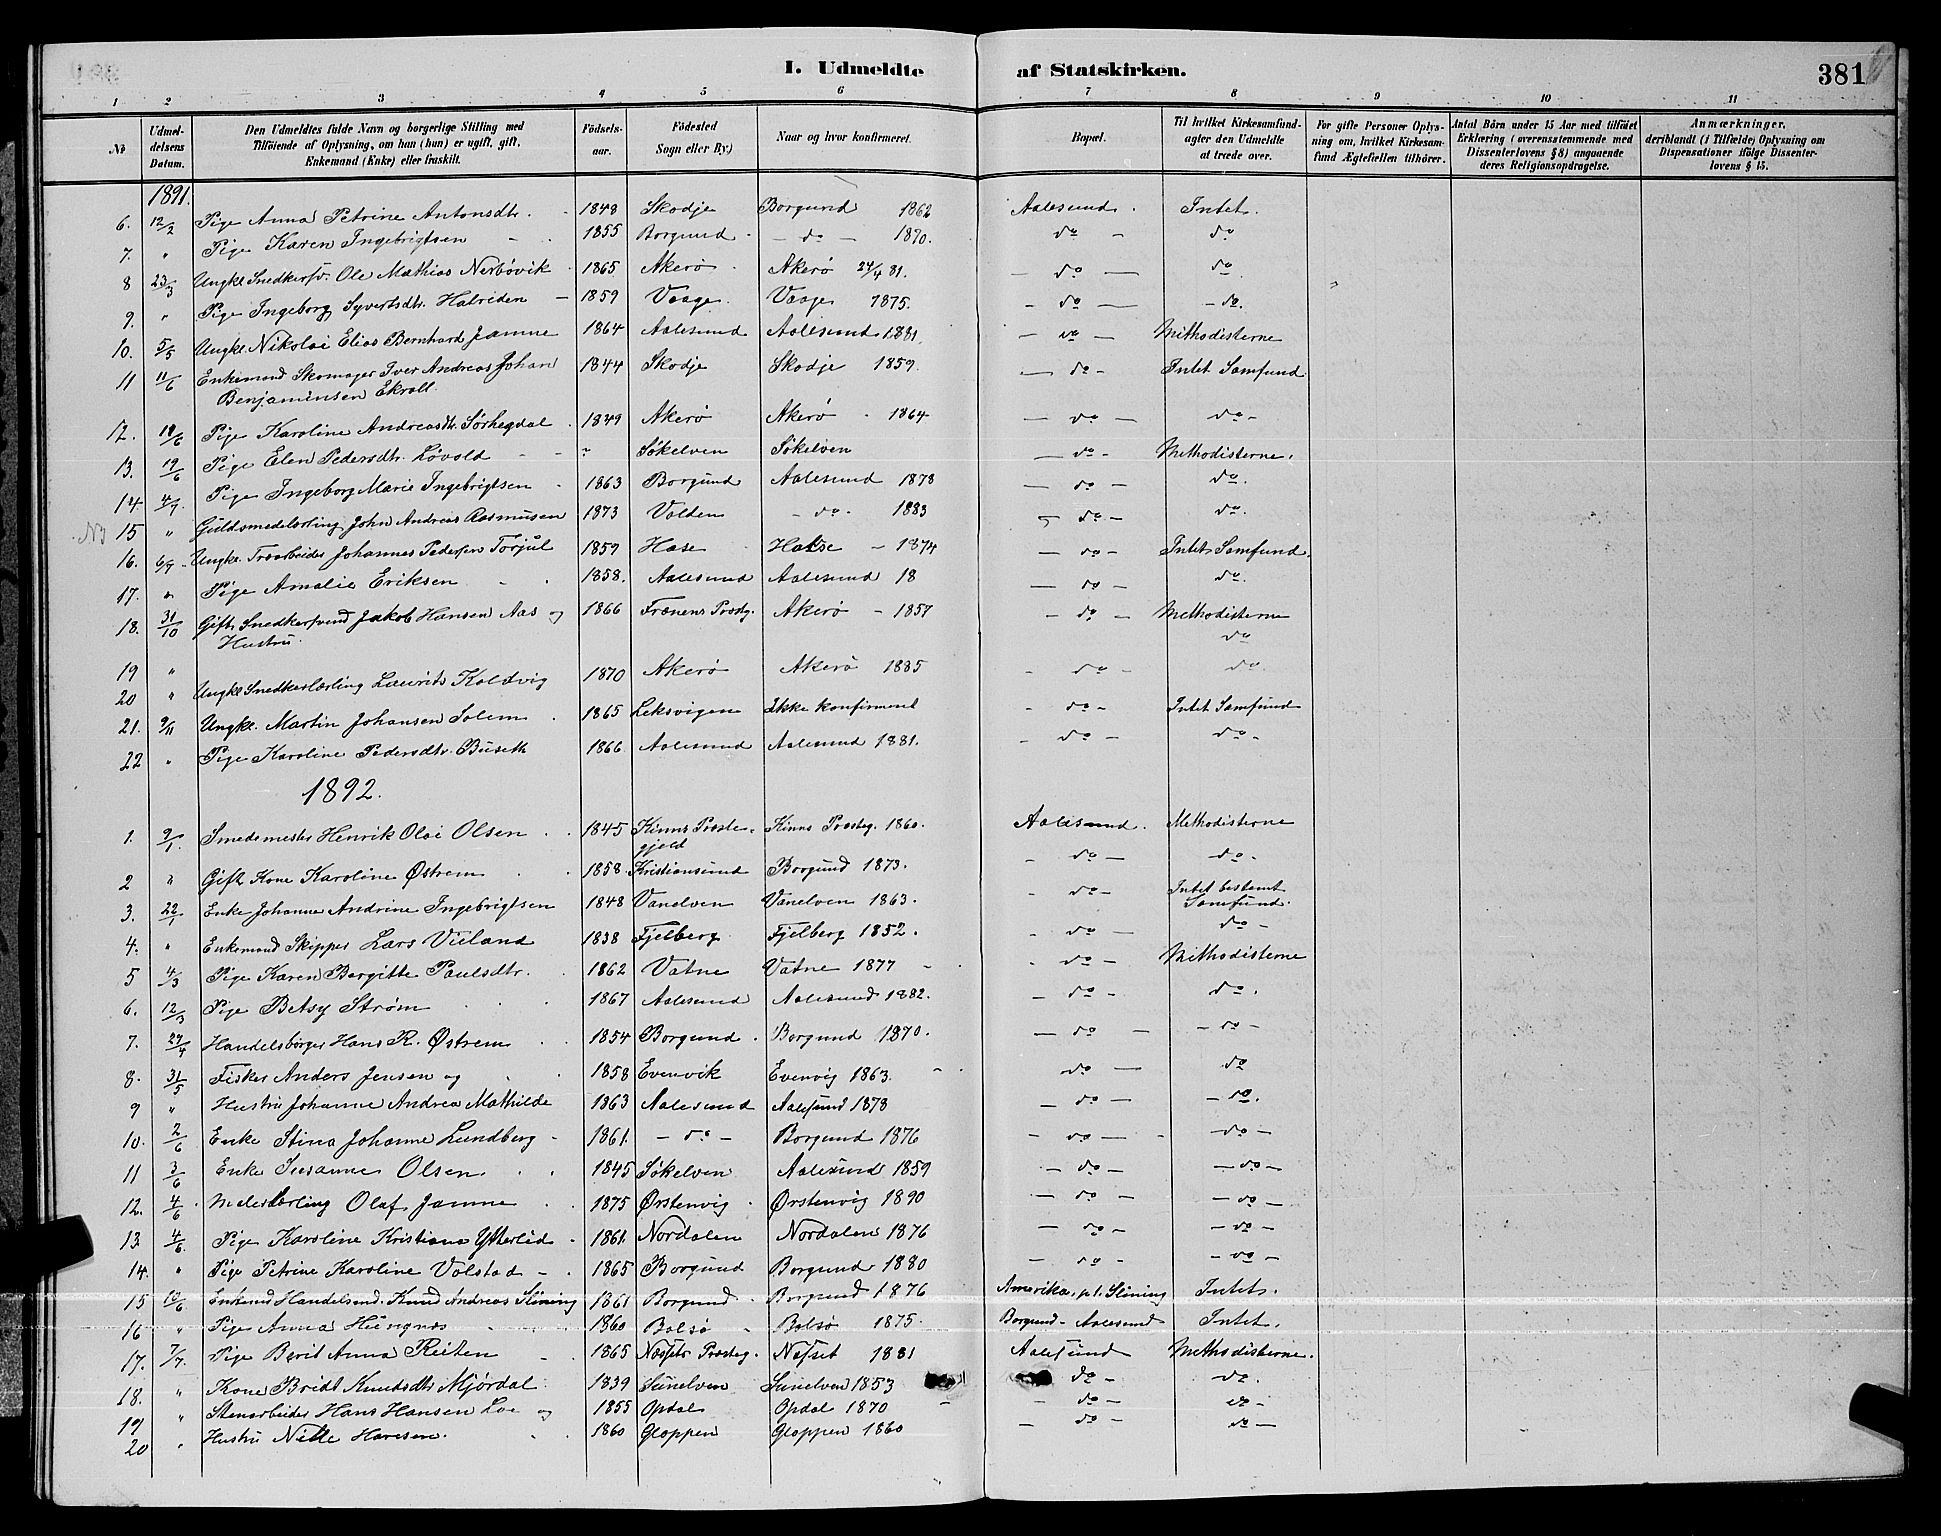 I. Udmeldte af Statskirken. 381
1 2 3 4 5 6 7 8 9 10 11
No | Udmeldelsens Datum. | Den Udmeldtes fulde Navn og borgerlige Stilling med Tilføiende af Oplysning, om han (hun) er ugift, gift, Enkemand (Enke) eller fraskilt. | Fødselsaar. | Fødested Sogn eller By) | Naar og hvor konfirmeret. | Bopæl. | Til hvilket Kirkesamfund agter den Udmeldte at træde over. | For gifte Personer Oplysning om, hvilket Kirkesamfund Ægtefællen tilhører. | Antal Børn under 15 Aar med tilføiet Erklæring (overensstemmende med Dissenterlovens § 8) angaaende deres Religionsopdragelse. | Anmærkninger, deriblandt (i Tilfælde) Oplysning om Dispensationer ifølge Dissenterlovens § 15.
1891.
6. 12/2 Pige Anna Petrine Antonsdtr. 1848 Skodje Borgund 1862 Aalesund. Intet.
7. " Pige Karen Ingebrigtsen 1855 Borgund - do - 1870. do - do
8 23/3 Ungkl. Snedkersv. Ole Mathias Nerbøvik 1865 Akerø Akerø 24/4 81. - do - do
9. " Pige Ingeborg Syvertsdtr. Halriden 1859 Vaage. Vaage 1875. - do - - do.
10. 5/5 Ungkl. Nikolai Elias Bernhard Jamne 1864 Aalesund Aalesund 1881. - do - Methodisterne
11 11/6 Enkemand Skomager Iver Andreas Johan 1844 Skodje Skodje 1859. - do - Intet Samfund
Benjaminsen Ekroll.
12. 18/6 Pige Karoline Andreasdtr. Sørhegdal 1849 Akerø Akerø 1864 - do - do -
13. 19/6 Pige Elen Pedersdtr. Løvold - ? Søkelven Søkelven - do - Methodisterne.
14 4/7. Pige Ingeborg Marie Ingebrigtsen 1863 Borgund Aalesund 1878 - do - do.
15 " Guldsmedlærling John Andreas Rasmusen 1873 Volden - do - 1883 - do - do.
16. 6/7 Ungkl. Træarbeider Johannes Pedersen Torjul 1859 Hase Halse - 1874 - do - Intet Samfund.
17. " Pige Amalie Eriksen 1858. Aalesund Aalesund 18 - do - do.
18. 31/10 Gift Snedkersvend Jakob Hansen Aas og 1866 Frænens Præstg. Akerø - 1857 - do - Methodisterne
Hustru. do
19 " 1870 Akerø Akerø 1885 - do - do.
20 " Ungkl Snedkerlærling Laurits Koldvig
21. 9/11 Ungkl. Martin Johansen Solem 1865 Leksvigen Ikke konfirmeret - do - Intet Samfund
22 " Pige Karoline Pedersdtr. Buseth 1866 Aalesund Aalesund 1881. - do - do -
1892.
1. 9/1. Smedemester Henrik Olai Olsen 1845 Kinns Præste- Kinns Præsteg. 1860. Aalesund. Methodisterne
gjeld
2 " Gift Kone Karoline Østrem 1858. Kristiansund Borgund 1873. - do - - do -
3. 22/1 Enke Johanne Andrine Ingebrigtsen 1848 Vanelven Vanelven 1863. - do - Intet bestemt Samfund.
4. " Enkemand Skipper Lars Vieland 1838 Fjelberg Fjelberg 1852. - do - do -
5 4/3 Pige Karen Bergitte Paulsdtr. 1862 Vatne Vatne 1877 - do - Methodisterne
6. 12/3 Pige Betsy Strøm 1867 Aalesund Aalesund 1882. - do - do.
7. 24/4 Handelsborger Hans R. Østrem 1854 Borgund Borgund 1870. - do - - do -
8. 31/5 Fisker Anders Jensen og 1858 Evenvik Evenvig 1863. do - do
9 " Hustru Johanne Andrea Mathilde 1863 Aalesund Aalesund 1878 - do - - do.
10. 2/6 Enke Stina Johanne Lundberg - 1861. - do - Borgund 1876 - do - - do -
11 3/6 Enke Susanne Olsen 1845 Søkelven Aalesund 1859 - do - - do -
12. 4/6 Malerlærling Olaf Jamne 1875 Ørstenvig Ørstenvig 1890 - do - - do -
13 4/6. Pige Karoline Kristiana Ytterlid 1861. Nordalen Nordalen 1876 - do - - do -
14. " Pige Petrine Karoline Volstad - 1865 Borgund Borgund 1880 - do - - do -
15 10/6 Enkemd Handelsmd. Knud Andreas Slinning 1861 Borgund Borgund 1876 Amerika, p.t. Slinning Intet.
16 " Pige Anna Hungnes 1860 Bolsø Bolsø 1875. Borgund - Aalesund Intet.
17. 7/7. Pige Berit Anna Reiten 1865 Næsset Præsteg. Næsset 1881 Aalesund Methodisterne.
18. " Kone Bridt Knudsdtr Mjørdal 1839 Sunelven Sunelven 1853 do - do.
19 " Stenarbeider Hans Hansen Loe og 1855 Opdal Opdal 1870 - do - do -
20 " Hustru Nille Hansen. 1860 Gloppen Gloppen 1860 - do - do -